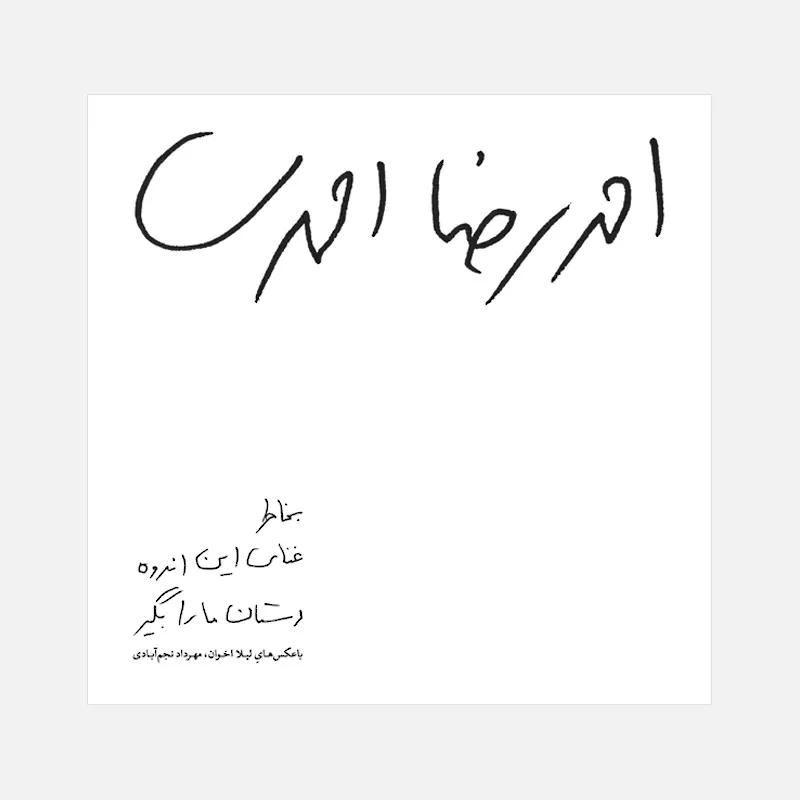 احمدرضا احمدی
بخاطر
غنای این اندوه
دستان ما را بگیر
با عکس‌های لیلا اخوان، مهرداد نجم‌آبادی